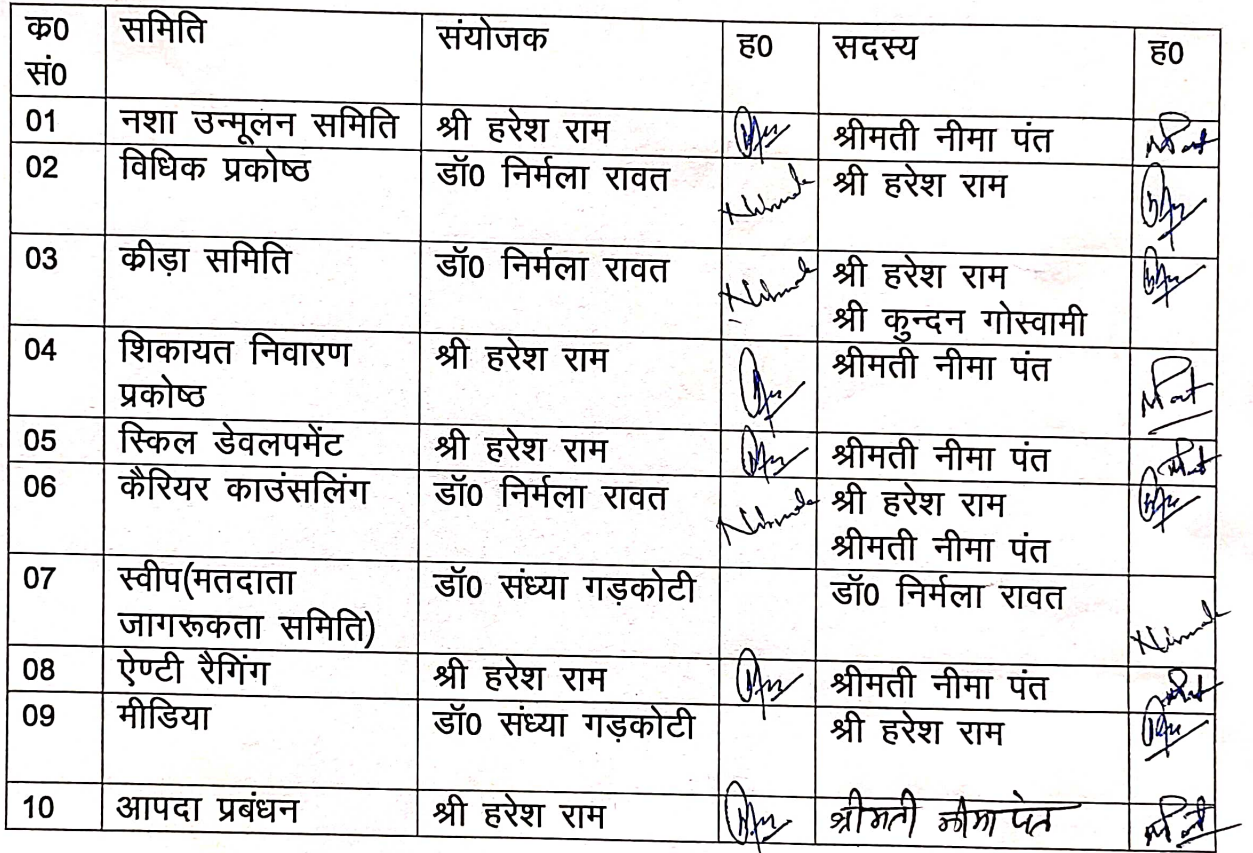 क0 समिति संयोजक ह0 सदस्य ह0
सं0
01 नशा उन्मूलन समिति श्री हरेश राम श्रीमती नीमा पंत
02 विधिक प्रकोष्ठ डॉ0 निर्मला रावत श्री हरेश राम
03 कीड़ा समिति डॉ0 निर्मला रावत श्री हरेश राम
श्री कुन्दन गोस्वामी
04 शिकायत निवारण श्री हरेश राम श्रीमती नीमा पंत
प्रकोष्ठ
05 स्किल डेवलपमेंट श्री हरेश राम श्रीमती नीमा पंत
06 कैरियर काउंसलिंग डॉ0 निर्मला रावत श्री हरेश राम
श्रीमती नीमा पंत
07 स्वीप(मतदाता डॉ0 संध्या गड़कोटी डॉ0 निर्मला रावत
जागरूकता समिति)
08 ऐण्टी रैगिंग श्री हरेश राम श्रीमती नीमा पंत
09 मीडिया डॉ0 संध्या गड़कोटी श्री हरेश राम
10 आपदा प्रबंधन श्री हरेश राम श्रीमती नीमा पंत